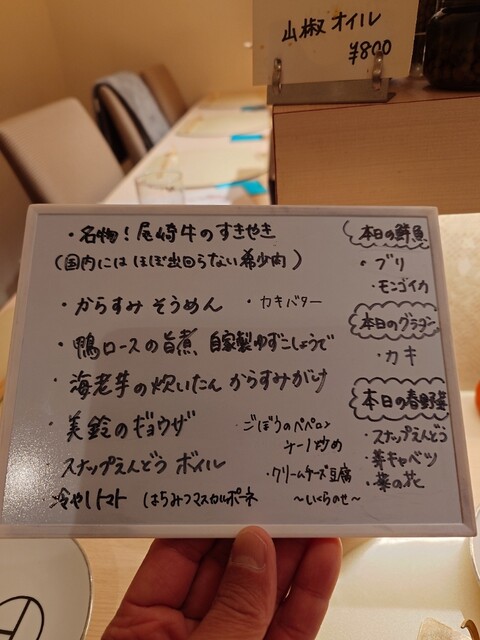 山椒オイル
¥800
・名物！尾崎牛のすきやき
（国内にはほぼ出回らない希少肉）
・からすみそうめん
・カキバター
・鴨ロースの旨煮、自家製ゆずこしょうで
・海老芋の炊いたん からすみがけ
・美鈴のギョウザ
・ごぼうのペペロンチーノ炒め
・スナップえんどう ボイル
・クリームチーズ豆腐
～いくらのせ～
・冷やしトマト はちみつマスカルポーネ
本日の鮮魚
・ブリ
・モンゴイカ
本日のグラタン
・カキ
本日の春野菜
・スナップえんどう
・芽キャベツ
・菜の花